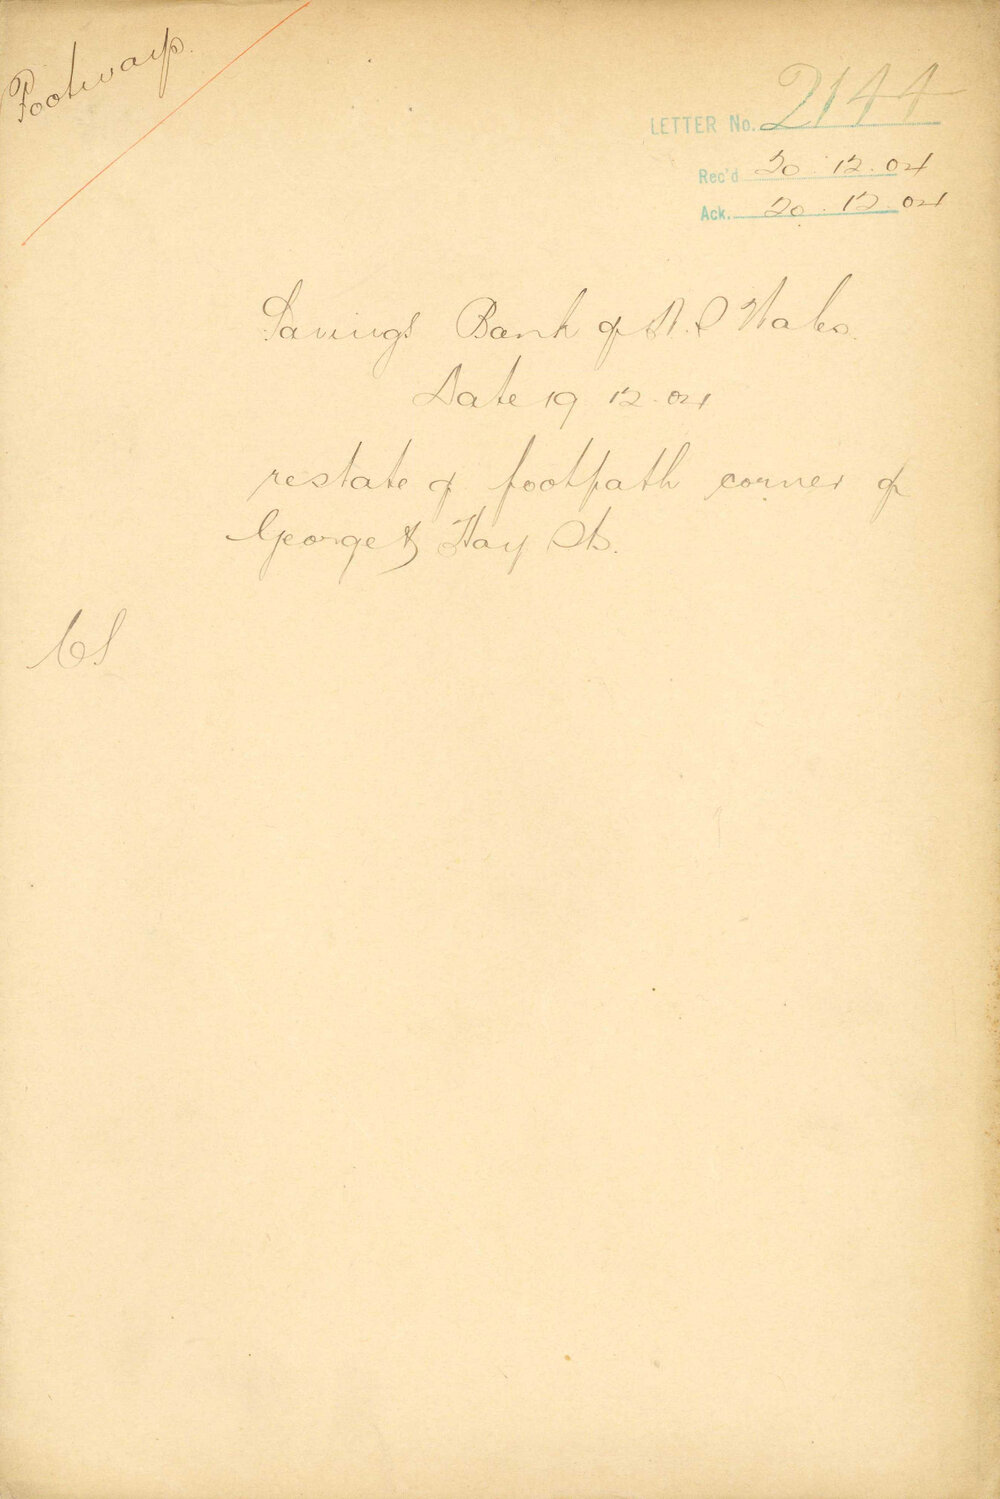 Footways.
LETTER No. 2144
Rec'd 20.12.04
Ack. 20.12.04
Savings Bank of N.S Wales.
Date 19 12.04
re state of footpath corner of
George & Hay Sts.
CS